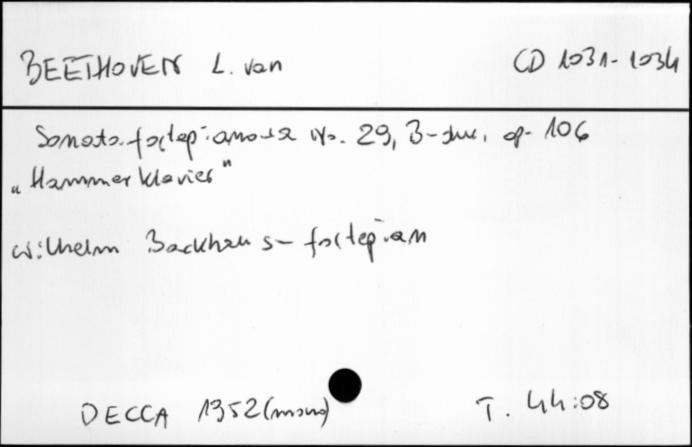 BEETHOVEN L. van CD 1031-1034
Sonata fortepianowa Nr. 29, B-dur, op. 106
„Hammerklavier"
Wilhelm Backhaus - fortepian
DECCA 1352 (mono) T. 44:08